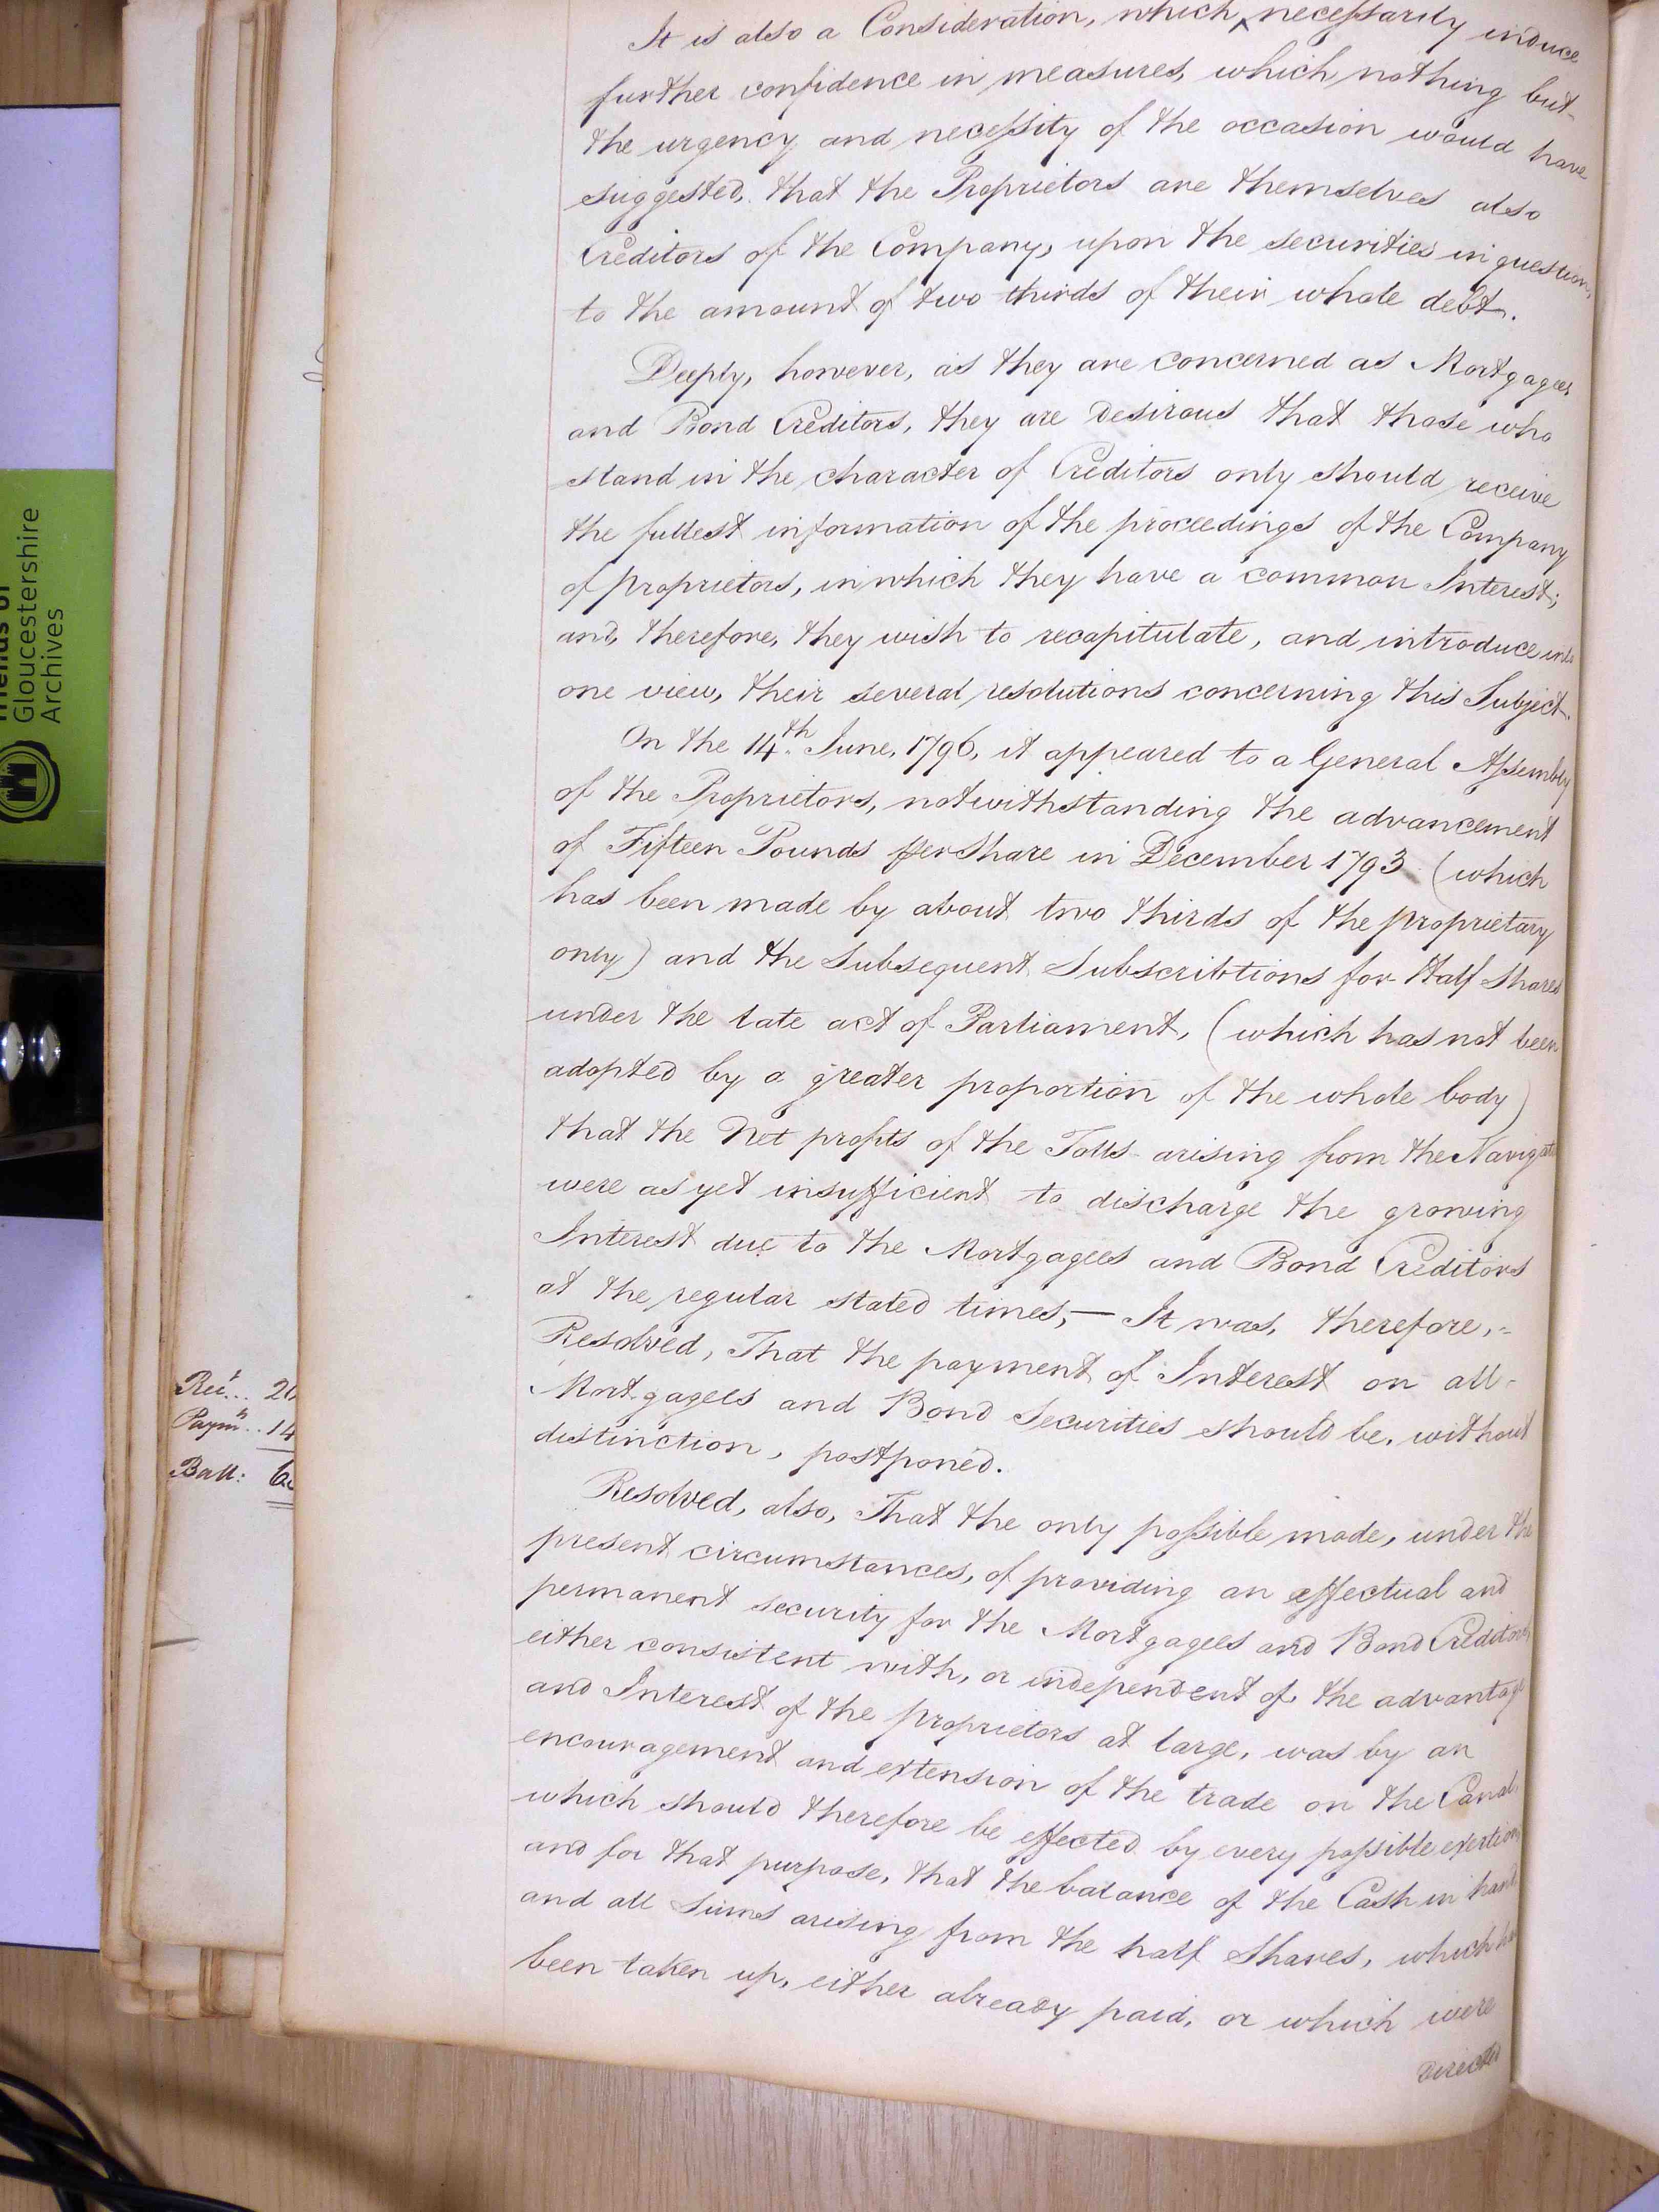 It is also a Consideration, which ^ necessarily induce
further confidence in measures, which nothing but
the urgency and necessity of the occasion would have
suggested, that the Proprietors are themselves also
Creditors of the Company, upon the securities in question,
to the amount of two thirds of their whole debt.
Deeply, however, as they are concerned as Mortgagees
and Bond Creditors, they are desirous that those who
stand in the character of Creditors only should receive
the fullest information of the proceedings of the Company
of proprietors, in which they have a common Interest;
and, therefore, they wish to recapitulate, and introduce into
one view, their several resolutions concerning this Subject.
On the 14.th June, 1796, it appeared to a General Assembly
of the Proprietors, notwithstanding the advancement
of Fifteen Pounds per Share in December 1793 (which
has been made by about two thirds of the proprietary
only) and the Subsequent Subscribtions for Half Shares
under the late act of Parliament, (which has not been
adopted by a greater proportion of the whole body)
that the Net profits of the Tolls arising from the Navigat
were as yet insufficient to discharge the growing
Interest due to the Mortgagees and Bond Creditors
at the regular stated times,— It was, therefore,-
Resolved, That the payment of Interest on all-
Mortgagees and Bond Securities should be, without
distinction, postponed.
Resolved, also, That the only possible mode, under the
present circumstances, of providing an effectual and
permanent security for the Mortgagees and Bond Creditors,
either consistent with, or independent of, the advantage
and Interest of the proprietors at large, was by an
encouragement and extension of the trade on the Canal,
which should therefore be effected by every possible exertion,
and for that purpose, that the balance of the Cash in hand
and all Sums arising from the half Shares, which ha
been taken up, either already paid, or which were
Directed
Rec.t.. 20
Paym.ts.. 14
Ball: 60
Friends of
Gloucestershire
Archives